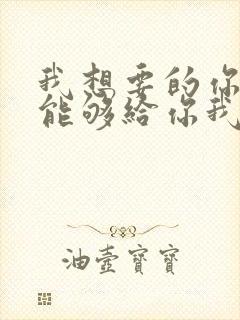 我想要的你
能够给你我
油壶寶寶